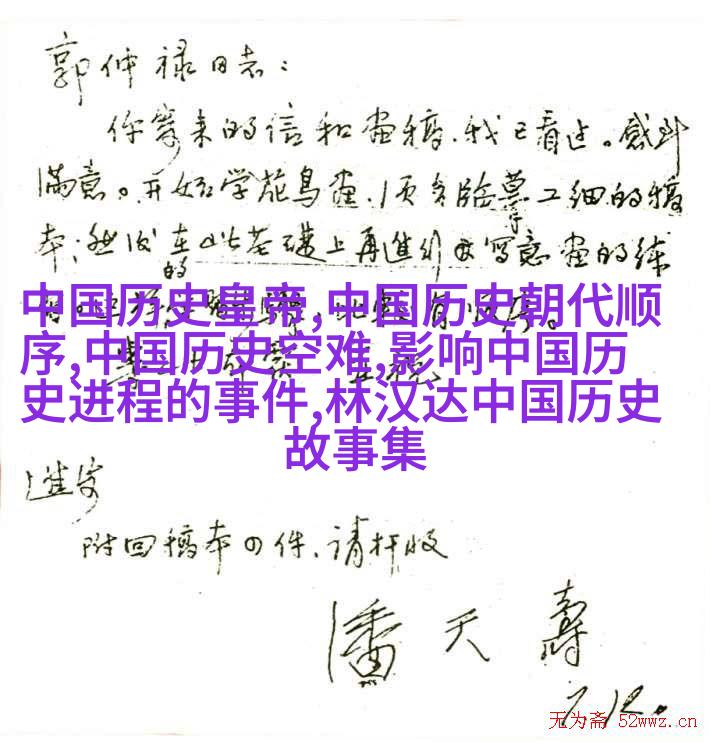 郭仲禄同志：
你寄来的信和画稿，我已看过。感到
满意。开始学花鸟画，须多临摹工细的稿
本；然后在此基础上再进行写意画的练
的
中国历史皇帝,中国历史朝代顺
序,中国历史空难,影响中国历
史进程的事件,林汉达中国历史
故事集
进安
附回稿本四件，请检收
潘天寿
7.12.
无为斋 52wwz.cn